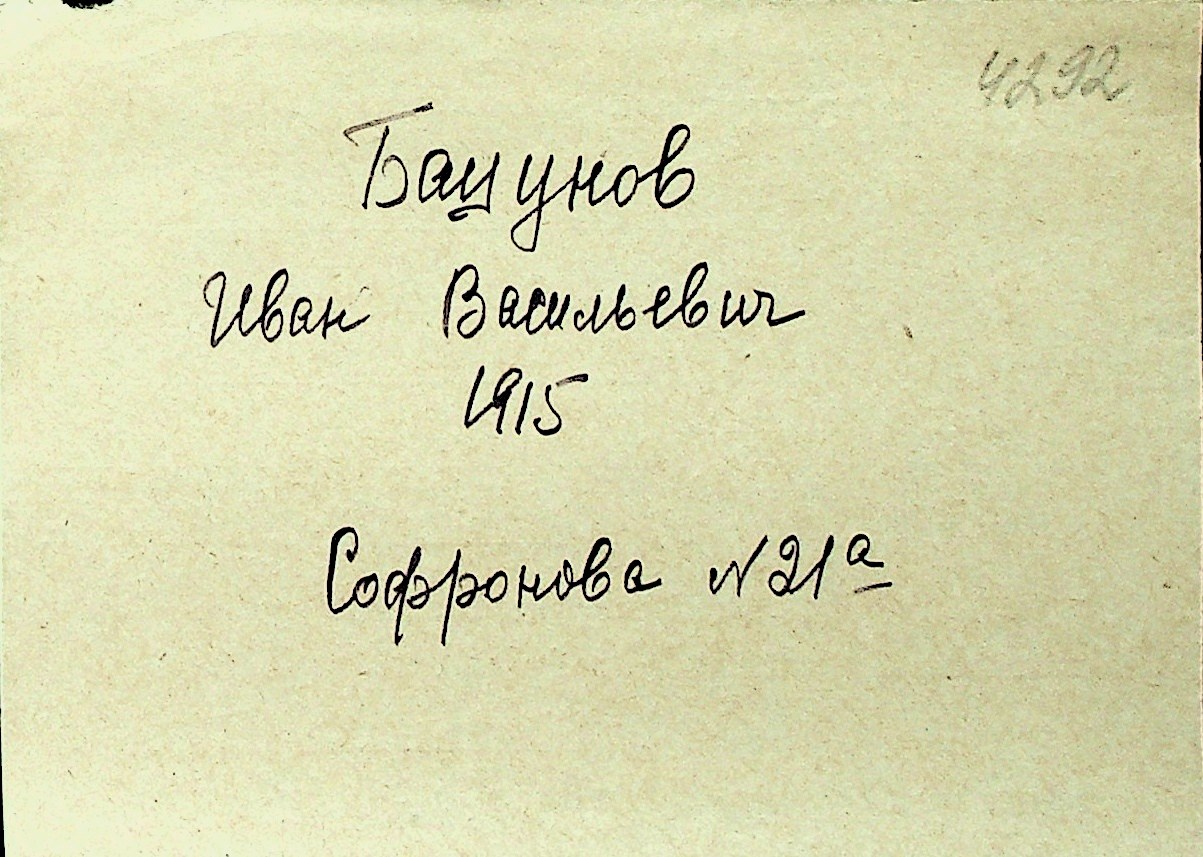 4292
Башунов
Иван Васильевич
1915
Софронова №21а